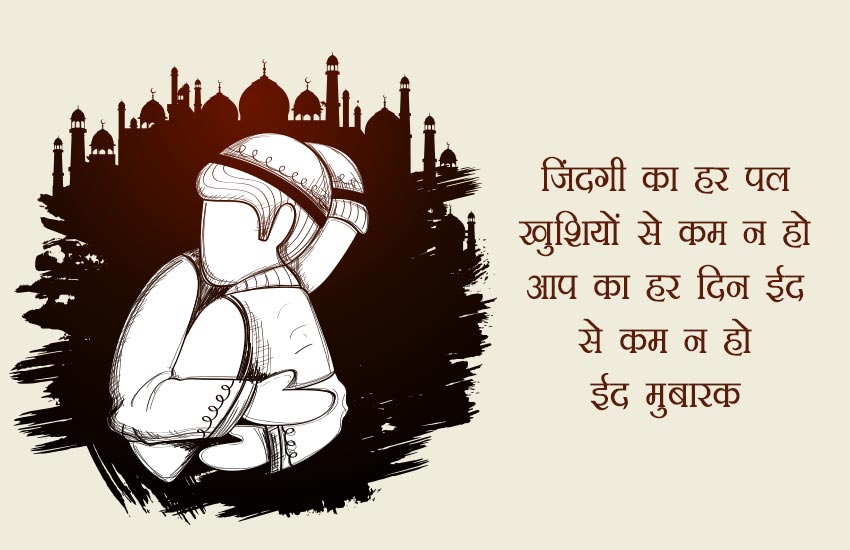 जिंदगी का हर पल
खुशियों से कम न हो
आप का हर दिन ईद
से कम न हो
ईद मुबारक